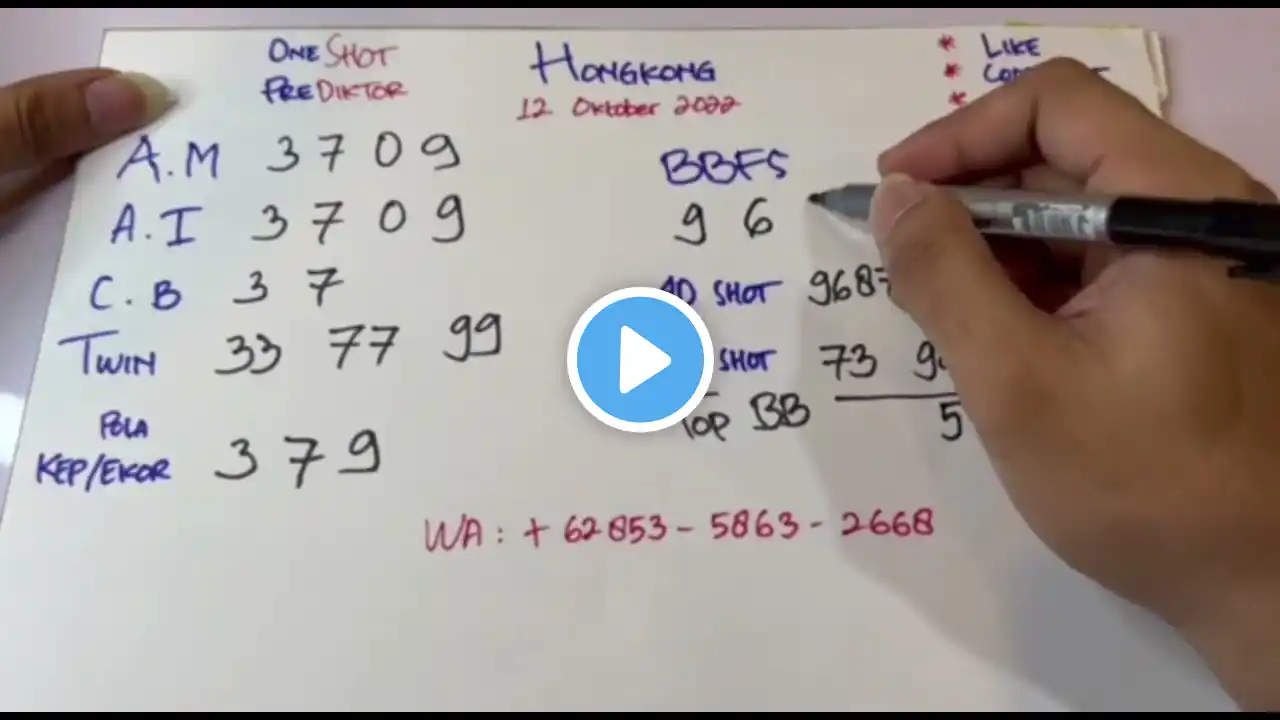 ONE SHOT
PREDIKTOR
HONGKONG
12 Oktober 2022
* LIKE
*
*
A.M 3 7 0 9
A.I 3 7 0 9
C.B 3 7
TWIN 33 77 99
POLA
KEP/EKOR 3 7 9
BBFS
9 6
SHOT 9687
SHOT 73
TOP BB 5
WA : + 62853 - 5863 - 2668